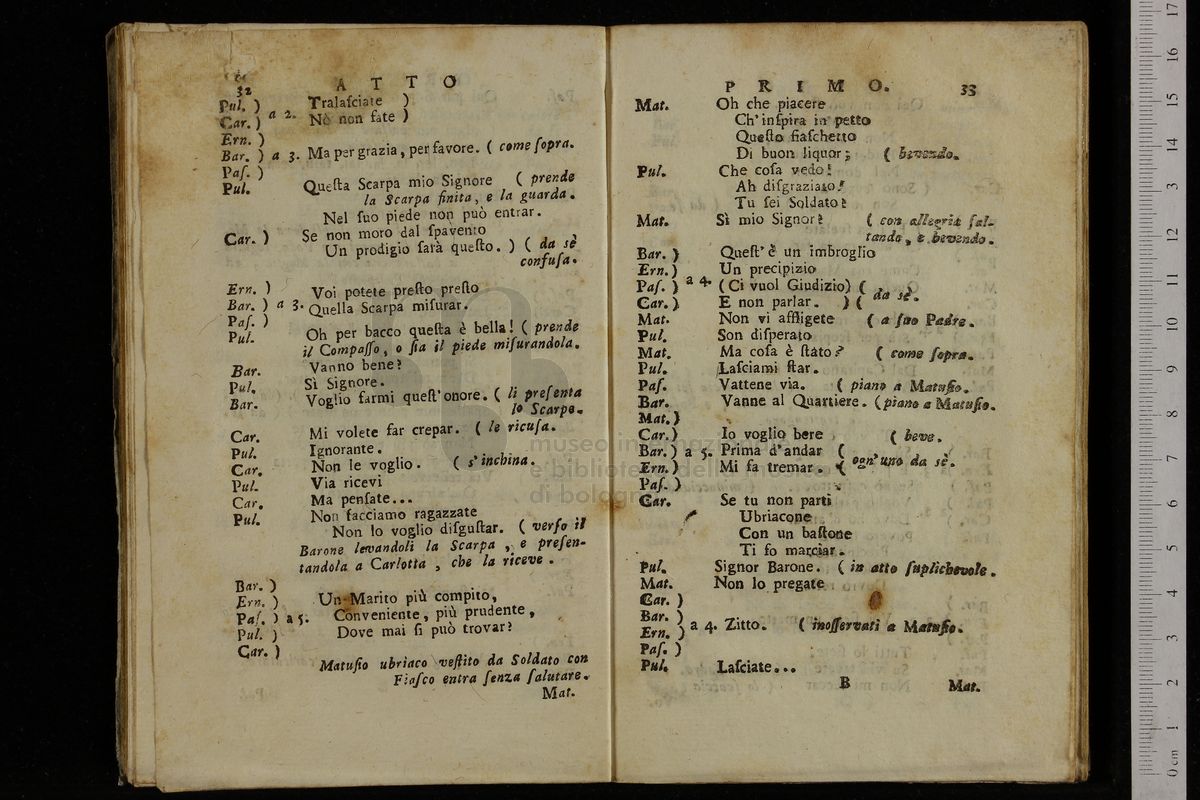 32
A T T O
Pul. ) Tralaſciate )
Car. ) a 2. Nò non fate )
Ern. )
Bar. ) a 3. Ma per grazia, per favore. ( come ſopra.
Paſ. )
Pul. Queſta Scarpa mio Signore ( prende
la Scarpa finita, e la guarda.
Nel ſuo piede non può entrar.
Car. ) Se non moro dal ſpavento
Un prodigio ſarà queſto. ) ( da sè
confuſa.
Ern. ) Voi potete preſto preſto
Bar. ) a 3. Quella Scarpa miſurar.
Paſ. )
Pul. Oh per bacco queſta è bella! ( prende
il Compaſſo, o ſia il piede miſurandola.
Bar. Vanno bene?
Pul. Sì Signore.
Bar. Voglio farmi queſt'onore. ( li preſenta
lo Scarpe.
Car. Mi volete far crepar. ( le ricuſa.
Pul. Ignorante.
Car. Non le voglio. ( s'inchina.
Pul. Via ricevi
Car. Ma penſate...
Pul. Non facciamo ragazzate
Non lo voglio diſguſtar. ( verſo il
Barone levandoli la Scarpa, e preſen-
tandola a Carlotta, che la riceve.
Bar. )
Ern. ) Un Marito più compito,
Paſ. ) a 5. Conveniente, più prudente,
Pul. ) Dove mai ſi può trovar?
Car. )
Matuſio ubriaco veſtito da Soldato con
Fiaſco entra ſenza ſalutare.
Mat.
P R I M O.
33
Mat. Oh che piacere
Ch'inſpira in petto
Queſto fiaſchetto
Di buon liquor; ( bevendo.
Pul. Che coſa vedo!
Ah diſgraziato!
Tu ſei Soldato?
Mat. Sì mio Signor? ( con allegria ſal-
tando, e bevendo.
Bar. ) Queſt'è un imbroglio
Ern. ) Un precipizio
Paſ. ) a 4. (Ci vuol Giudizio) (
Car. ) E non parlar. ) ( da sè.
Mat. Non vi affligete ( a ſuo Padre.
Pul. Son diſperato
Mat. Ma coſa è ſtato? ( come ſopra.
Pul. Laſciami ſtar.
Paſ. Vattene via. ( piano a Matuſio.
Bar. Vanne al Quartiere. (piano a Matuſio.
Mat. )
Car. ) Io voglio bere ( beve.
Bar. ) a 5. Prima d'andar (
Ern. ) Mi fa tremar. ( ogn'uno da sè.
Paſ. )
Car. Se tu non parti
Ubriacone
Con un baſtone
Ti fo marciar.
Pul. Signor Barone. ( in atto ſuplichevole.
Mat. Non lo pregate
Car. )
Bar. )
Ern. ) a 4. Zitto. ( inoſſervati a Matuſio.
Paſ. )
Pul. Laſciate...
B
Mat.
museo internazionale
e biblioteca della
di bologna
0 cm 1 2 3 4 5 6 7 8 9 10 11 12 13 14 15 16 17